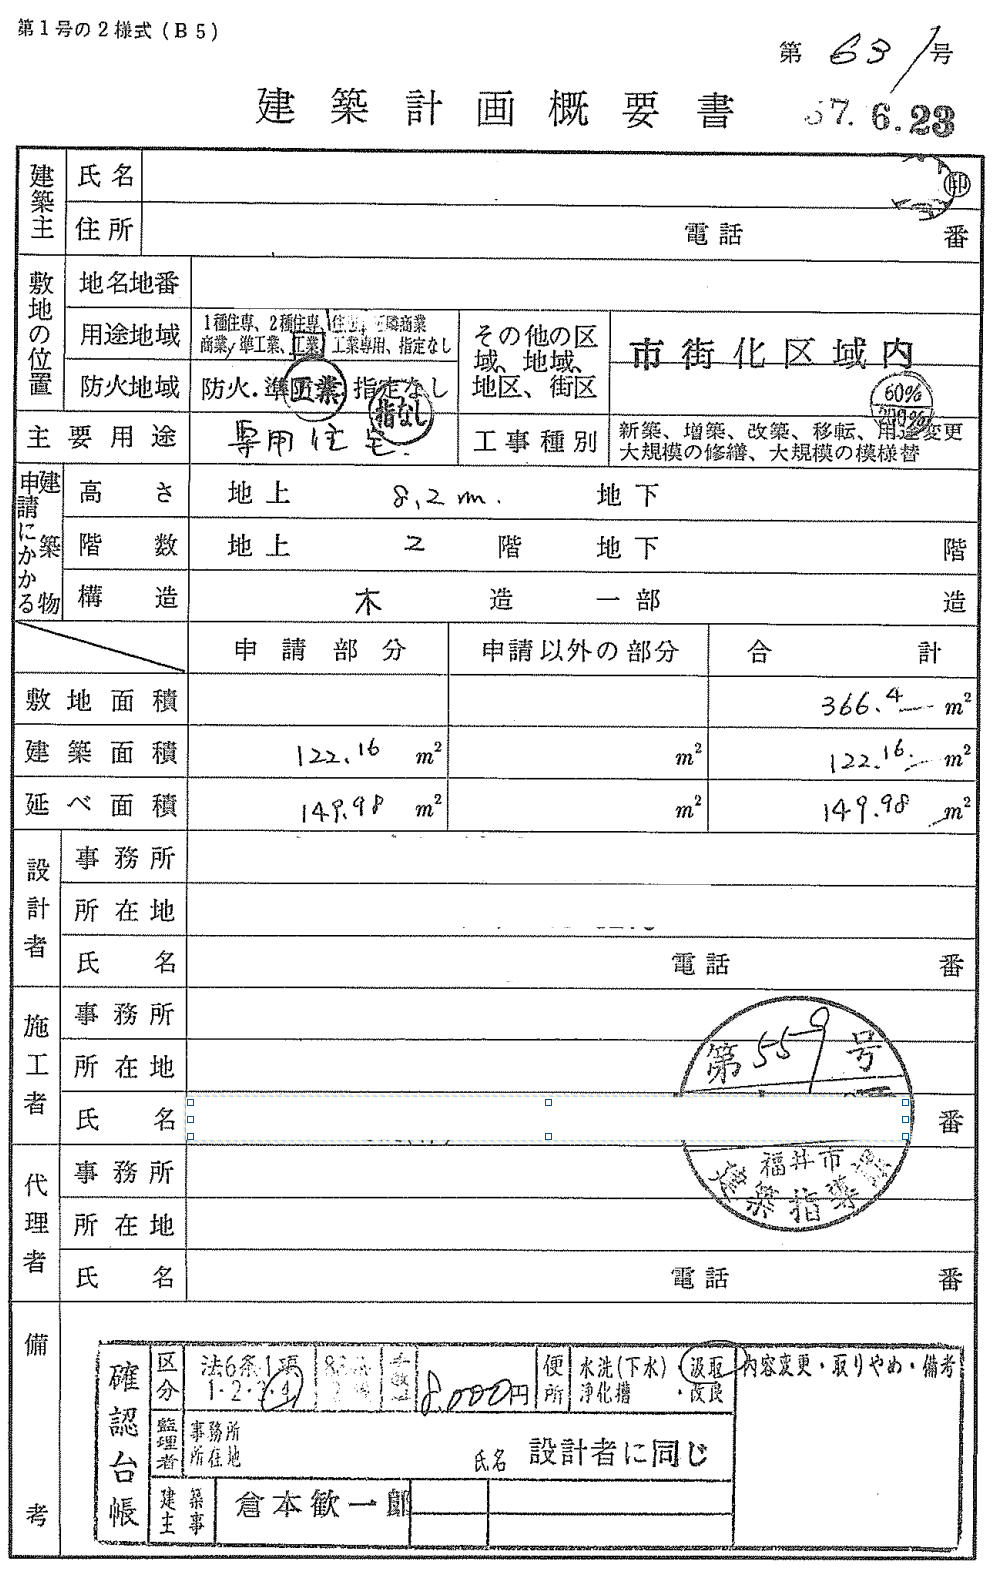 第1号の2様式(B5)
第 631 号
建築計画概要書
57.6.23
建築主
氏名
印
住所 電話 番
敷地の位置
地名地番
用途地域
1種住専、2種住専、
隣商業
商業、準工業、工業、工業専用、指定なし
その他の区域、地域、地区、街区
市街化区域内
防火地域
防火.準 指定なし
工業
指なし
60%
200%
主要用途
専用住宅.
工事種別
新築、増築、改築、移転、用途変更
大規模の修繕、大規模の模様替
申請にかかる建築物
高さ 地上 8.2m. 地下
階数 地上 2 階 地下 階
構造 木 造 一部 造
申請部分 申請以外の部分 合計
敷地面積 366.4 m²
建築面積 122.16 m² m² 122.16 m²
延べ面積 149.98 m² m² 149.98 m²
設計者
事務所
所在地
氏名 電話 番
施工者
事務所
所在地
氏名 番
第559号
福井市
建築指導課
代理者
事務所
所在地
氏名 電話 番
備考
確認台帳
区分
法6条1項
1・2・3・4
8,000円
便所
水洗(下水) 汲取
浄化槽 ・改良
内容変更・取りやめ・備考
監理者
事務所
所在地
氏名 設計者に同じ
建築主事
倉本歓一郎